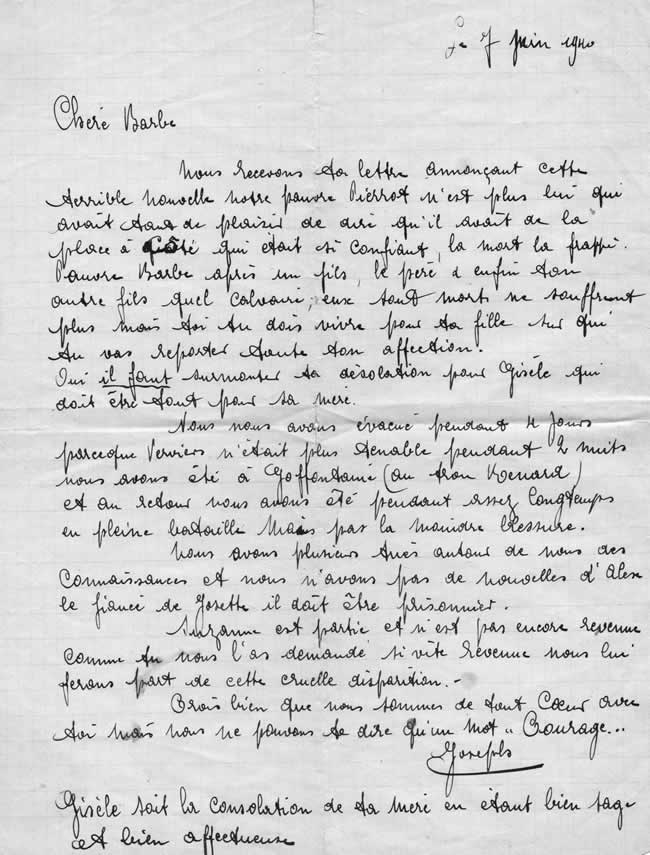 Le 7 juin 1940
Cheré Barbe
Nous recevons ta lettre annonçant cette
terrible nouvelle notre pauvre Pierrot n'est plus lui qui
avait tant de plaisir de dire qu'il avait de la
place à côté qui était si confiant, la mort la frappé.
Pauvre Barbe après un fils, le peré & enfin ton
autre fils quel calvaire, eux sont morts ne souffrent
plus mais toi tu dois vivre pour ta fille sur qui
tu vas reporter toute ton affection.
Oui il faut surmonter ta désolation pour Gisèle qui
doit être tout pour sa meré.
Nous nous avons évacué pendant 4 jours
parceque Verviers n'était plus tenable pendant 2 nuits
nous avons été à Goffontaine (au tron Renard)
et au retour nous avons été pendant assez longtemps
en pleine bataille mais pas la moindre blessure.
Nous avons plusieurs tués autour de nous des
connaissances et nous n'avons pas de nouvelles d'Alex
le fiancé de Josette il doit être prisonnier.
Suzanne est partie et n'est pas encore revenue
comme tu nous l'as demandé si vite revenue nous lui
ferons part de cette cruelle disparition.-
Crois bien que nous sommes de tout cœur avec
toi mais nous ne pouvons te dire qu'un mot "Courage...
Joseph
Gisèle soit la consolation de ta meré en étant bien sage
et bien affectueuse